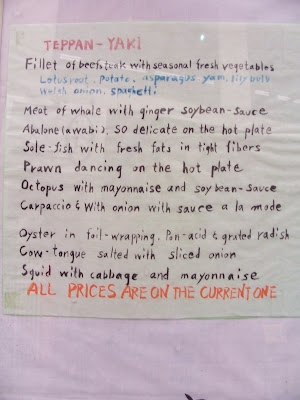 TEPPAN-YAKI
Fillet of beefsteak with seasonal fresh vegetables
Lotusroot, Potato, asparagus yam, lily bulb
Welsh onion, spaghetti
Meat of whale with ginger soybean-sauce
Abalone (awabi), so delicate on the hot plate
Sole-fish with fresh fats in tight fibers
Prawn dancing on the hot plate
Octopus with mayonnaise and soybean-sauce
Carpaccio & with onion with sauce a la mode
Oyster in foil-wrapping, Pon-acid & grated radish
Cow-tongue salted with sliced onion
Squid with cabbage and mayonnaise
ALL PRICES ARE ON THE CURRENT ONE